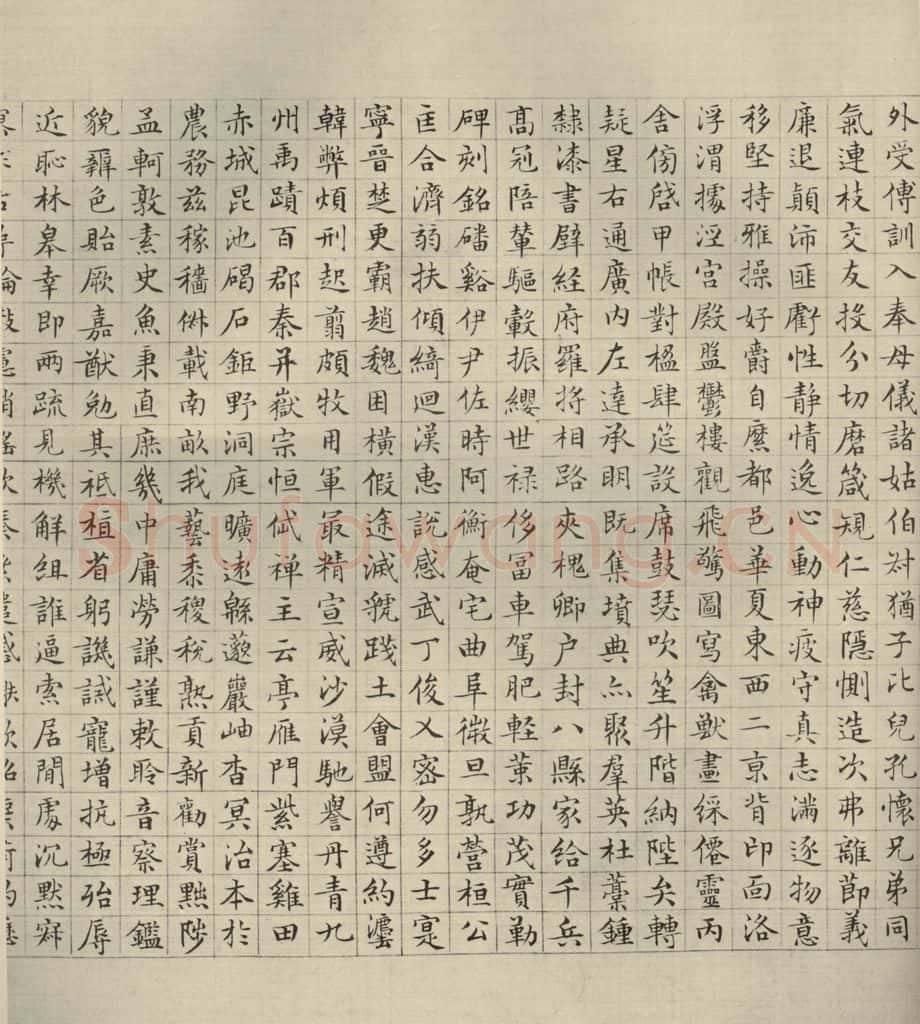 外受傅訓入奉母儀諸姑伯叔猶子比兒孔懷兄弟同
氣連枝交友投分切磨箴規仁慈隱惻造次弗離節義
廉退顛沛匪虧性靜情逸心動神疲守真志滿逐物意
移堅持雅操好爵自縻都邑華夏東西二京背邙面洛
浮渭據涇宮殿盤鬱樓觀飛驚圖寫禽獸畫綵僊靈丙
舍傍啓甲帳對楹肆筵設席鼓瑟吹笙升階納陛弁轉
疑星右通廣內左達承明既集墳典亦聚羣英杜藁鍾
隸漆書壁經府羅將相路夾槐卿戶封八縣家給千兵
高冠陪輦驅轂振纓世祿侈冨車駕肥輕策功茂實勒
碑刻銘磻谿伊尹佐時阿衡奄宅曲阜微旦孰營桓公
匡合濟弱扶傾綺迴漢惠說感武丁俊乂密勿多士寔
寧晉楚更霸趙魏困橫假途滅虢踐土會盟何遵約灋
韓弊煩刑起翦頗牧用軍最精宣威沙漠馳譽丹青九
州禹蹟百郡秦并嶽宗恒岱禪主云亭雁門紫塞雞田
赤城昆池碣石鉅野洞庭曠遠緜邈巖岫杳冥治本於
農務茲稼穡俶載南畝我藝黍稷稅熟貢新勸賞黜陟
孟軻敦素史魚秉直庶幾中庸勞謙謹敕聆音察理鑑
貌辨色貽厥嘉猷勉其祗植省躬譏誡寵增抗極殆辱
近恥林皋幸即兩疏見機解組誰逼索居閒處沉默寂
Shufawang.CN